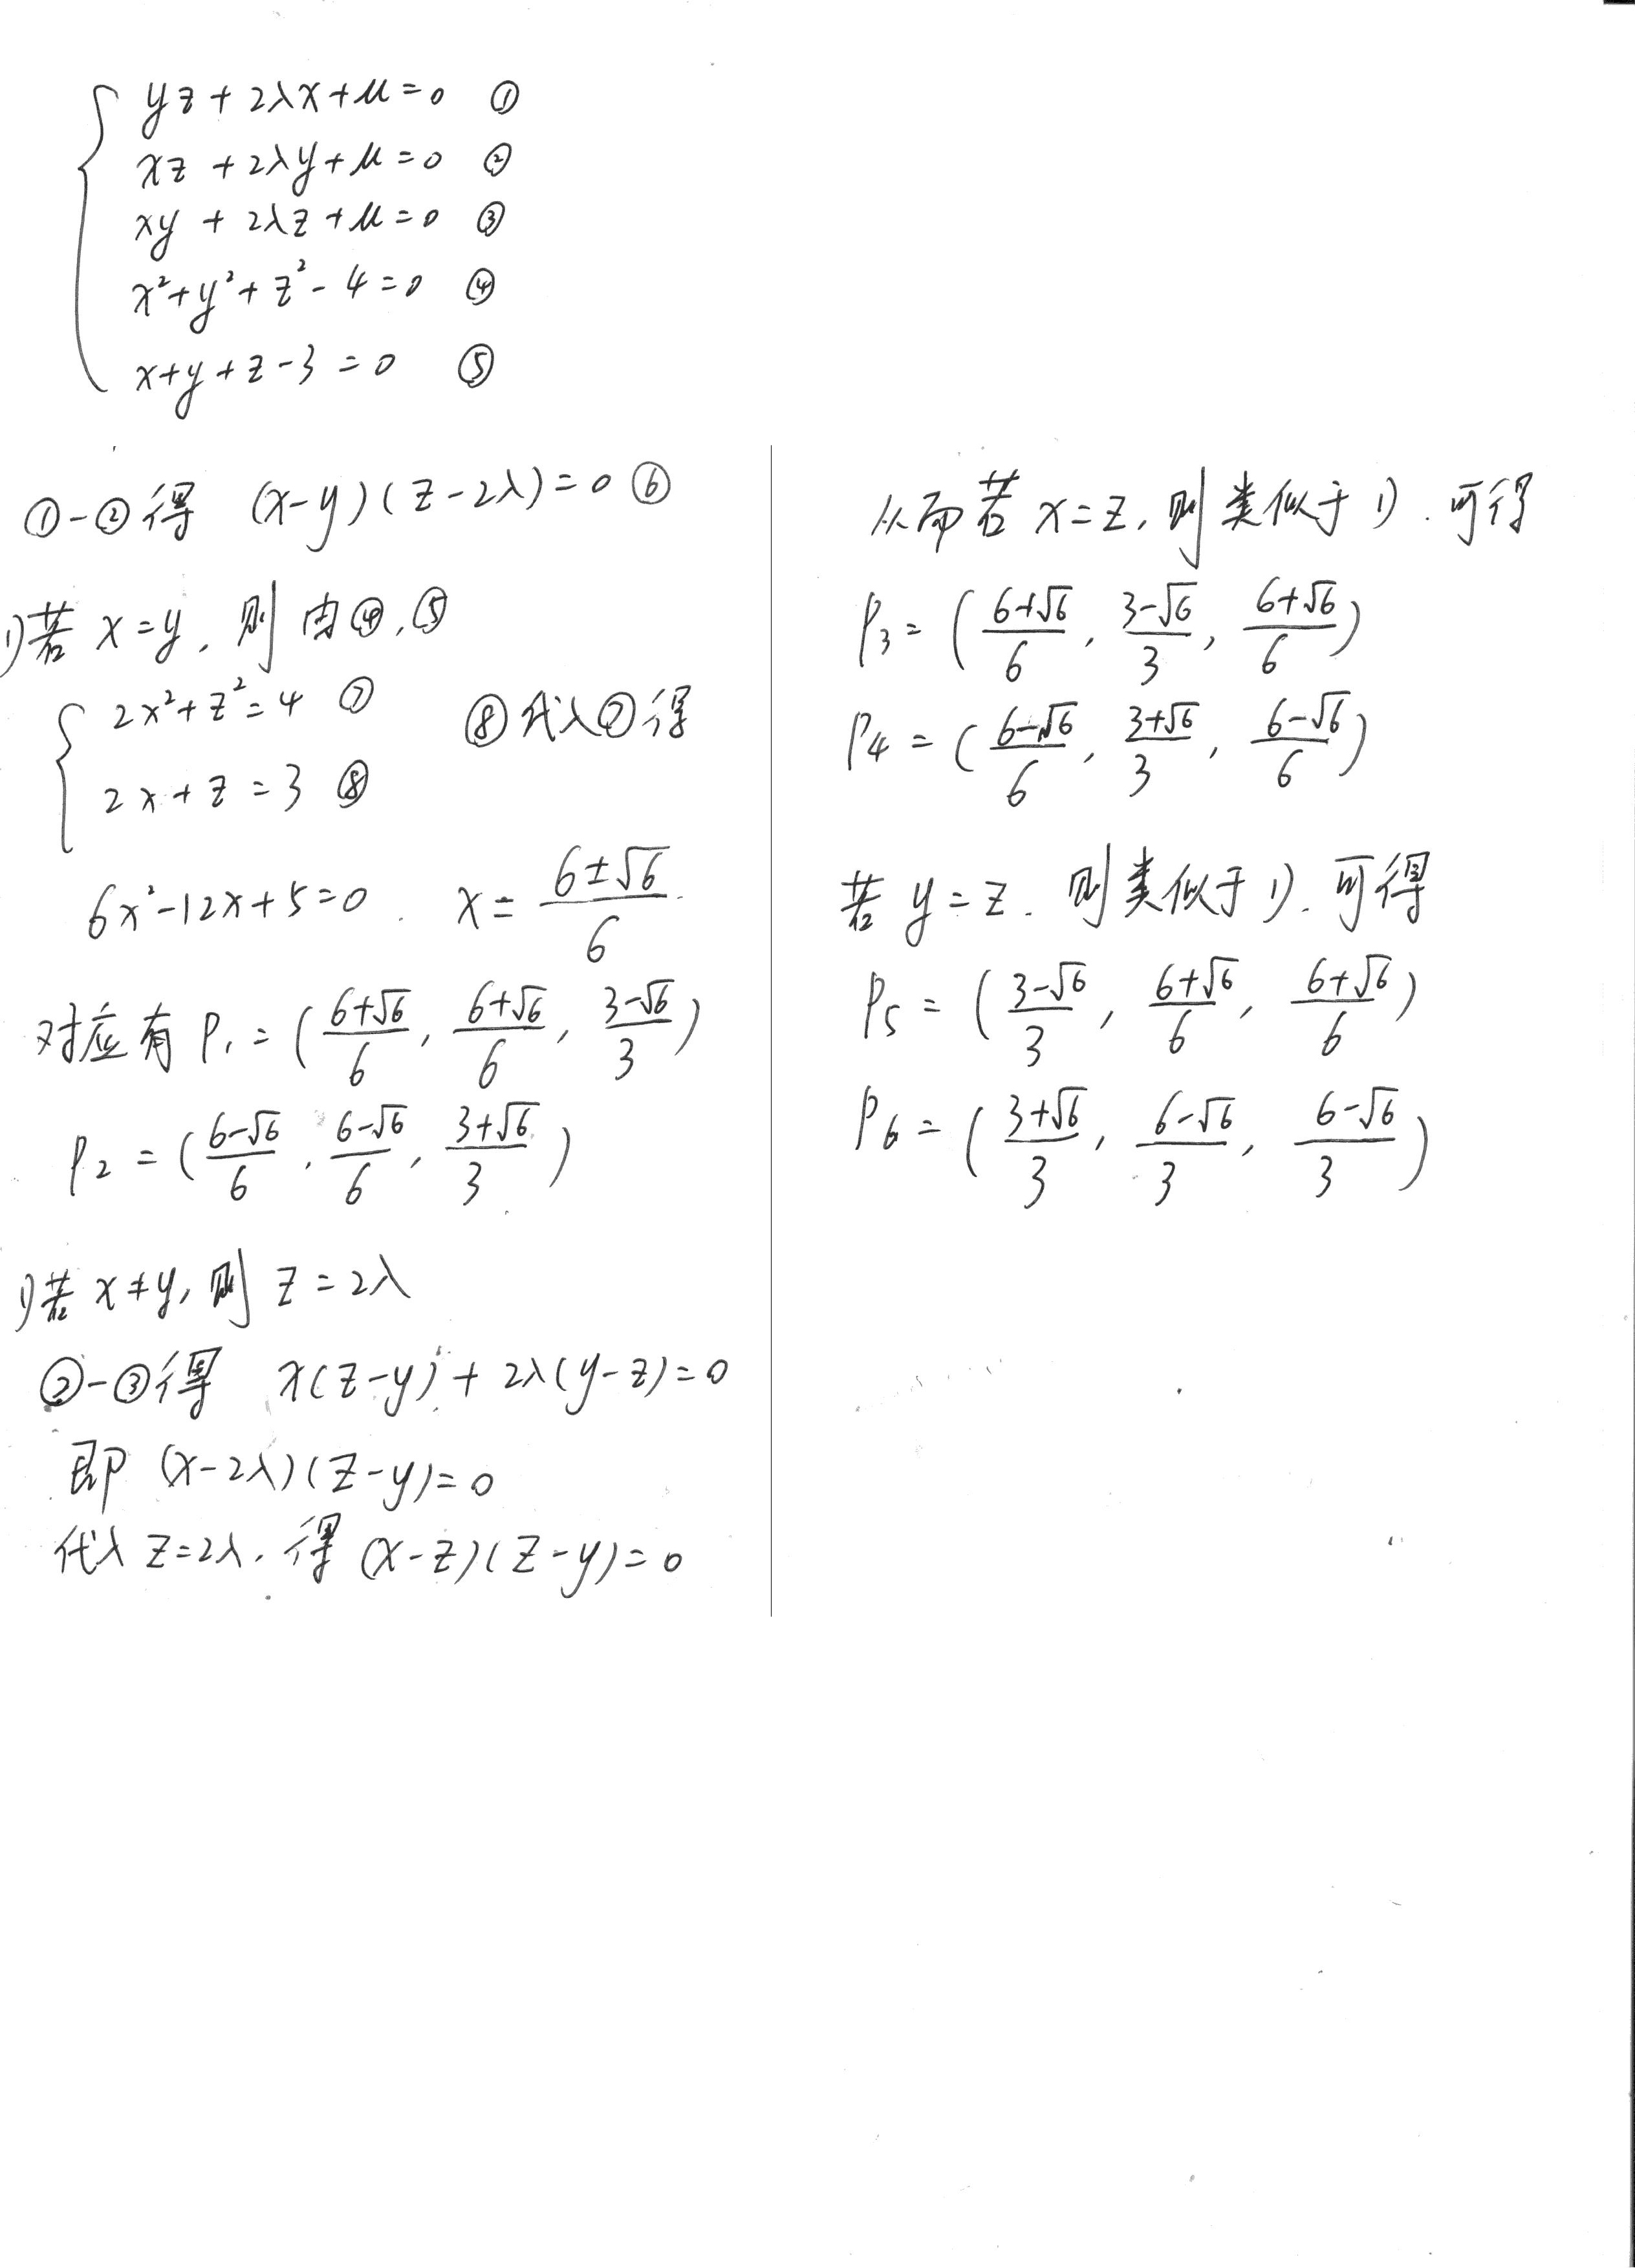 yz + 2λx + μ = 0 ①
xz + 2λy + μ = 0 ②
xy + 2λz + μ = 0 ③
x² + y² + z² - 4 = 0 ④
x + y + z - 3 = 0 ⑤
①-②得 (x-y)(z-2λ)=0 ⑥
1)若 x=y, 则由④,⑤
2x²+z²=4 ⑦
⑧代入⑦得
2x+z=3 ⑧
6x²-12x+5=0. x=(6±√6)/6.
对应有 P₁=((6+√6)/6, (6+√6)/6, (3-√6)/3)
P₂=((6-√6)/6, (6-√6)/6, (3+√6)/3)
1)若 x≠y, 则 z=2λ
②-③得 x(z-y)+2λ(y-z)=0
即 (x-2λ)(z-y)=0
代入 z=2λ, 得 (x-z)(z-y)=0
从而若 x=z, 则类似于1). 可得
P₃=((6+√6)/6, (3-√6)/3, (6+√6)/6)
P₄=((6-√6)/6, (3+√6)/3, (6-√6)/6)
若 y=z. 则类似于1). 可得
P₅=((3-√6)/3, (6+√6)/6, (6+√6)/6)
P₆=((3+√6)/3, (6-√6)/3, (6-√6)/3)